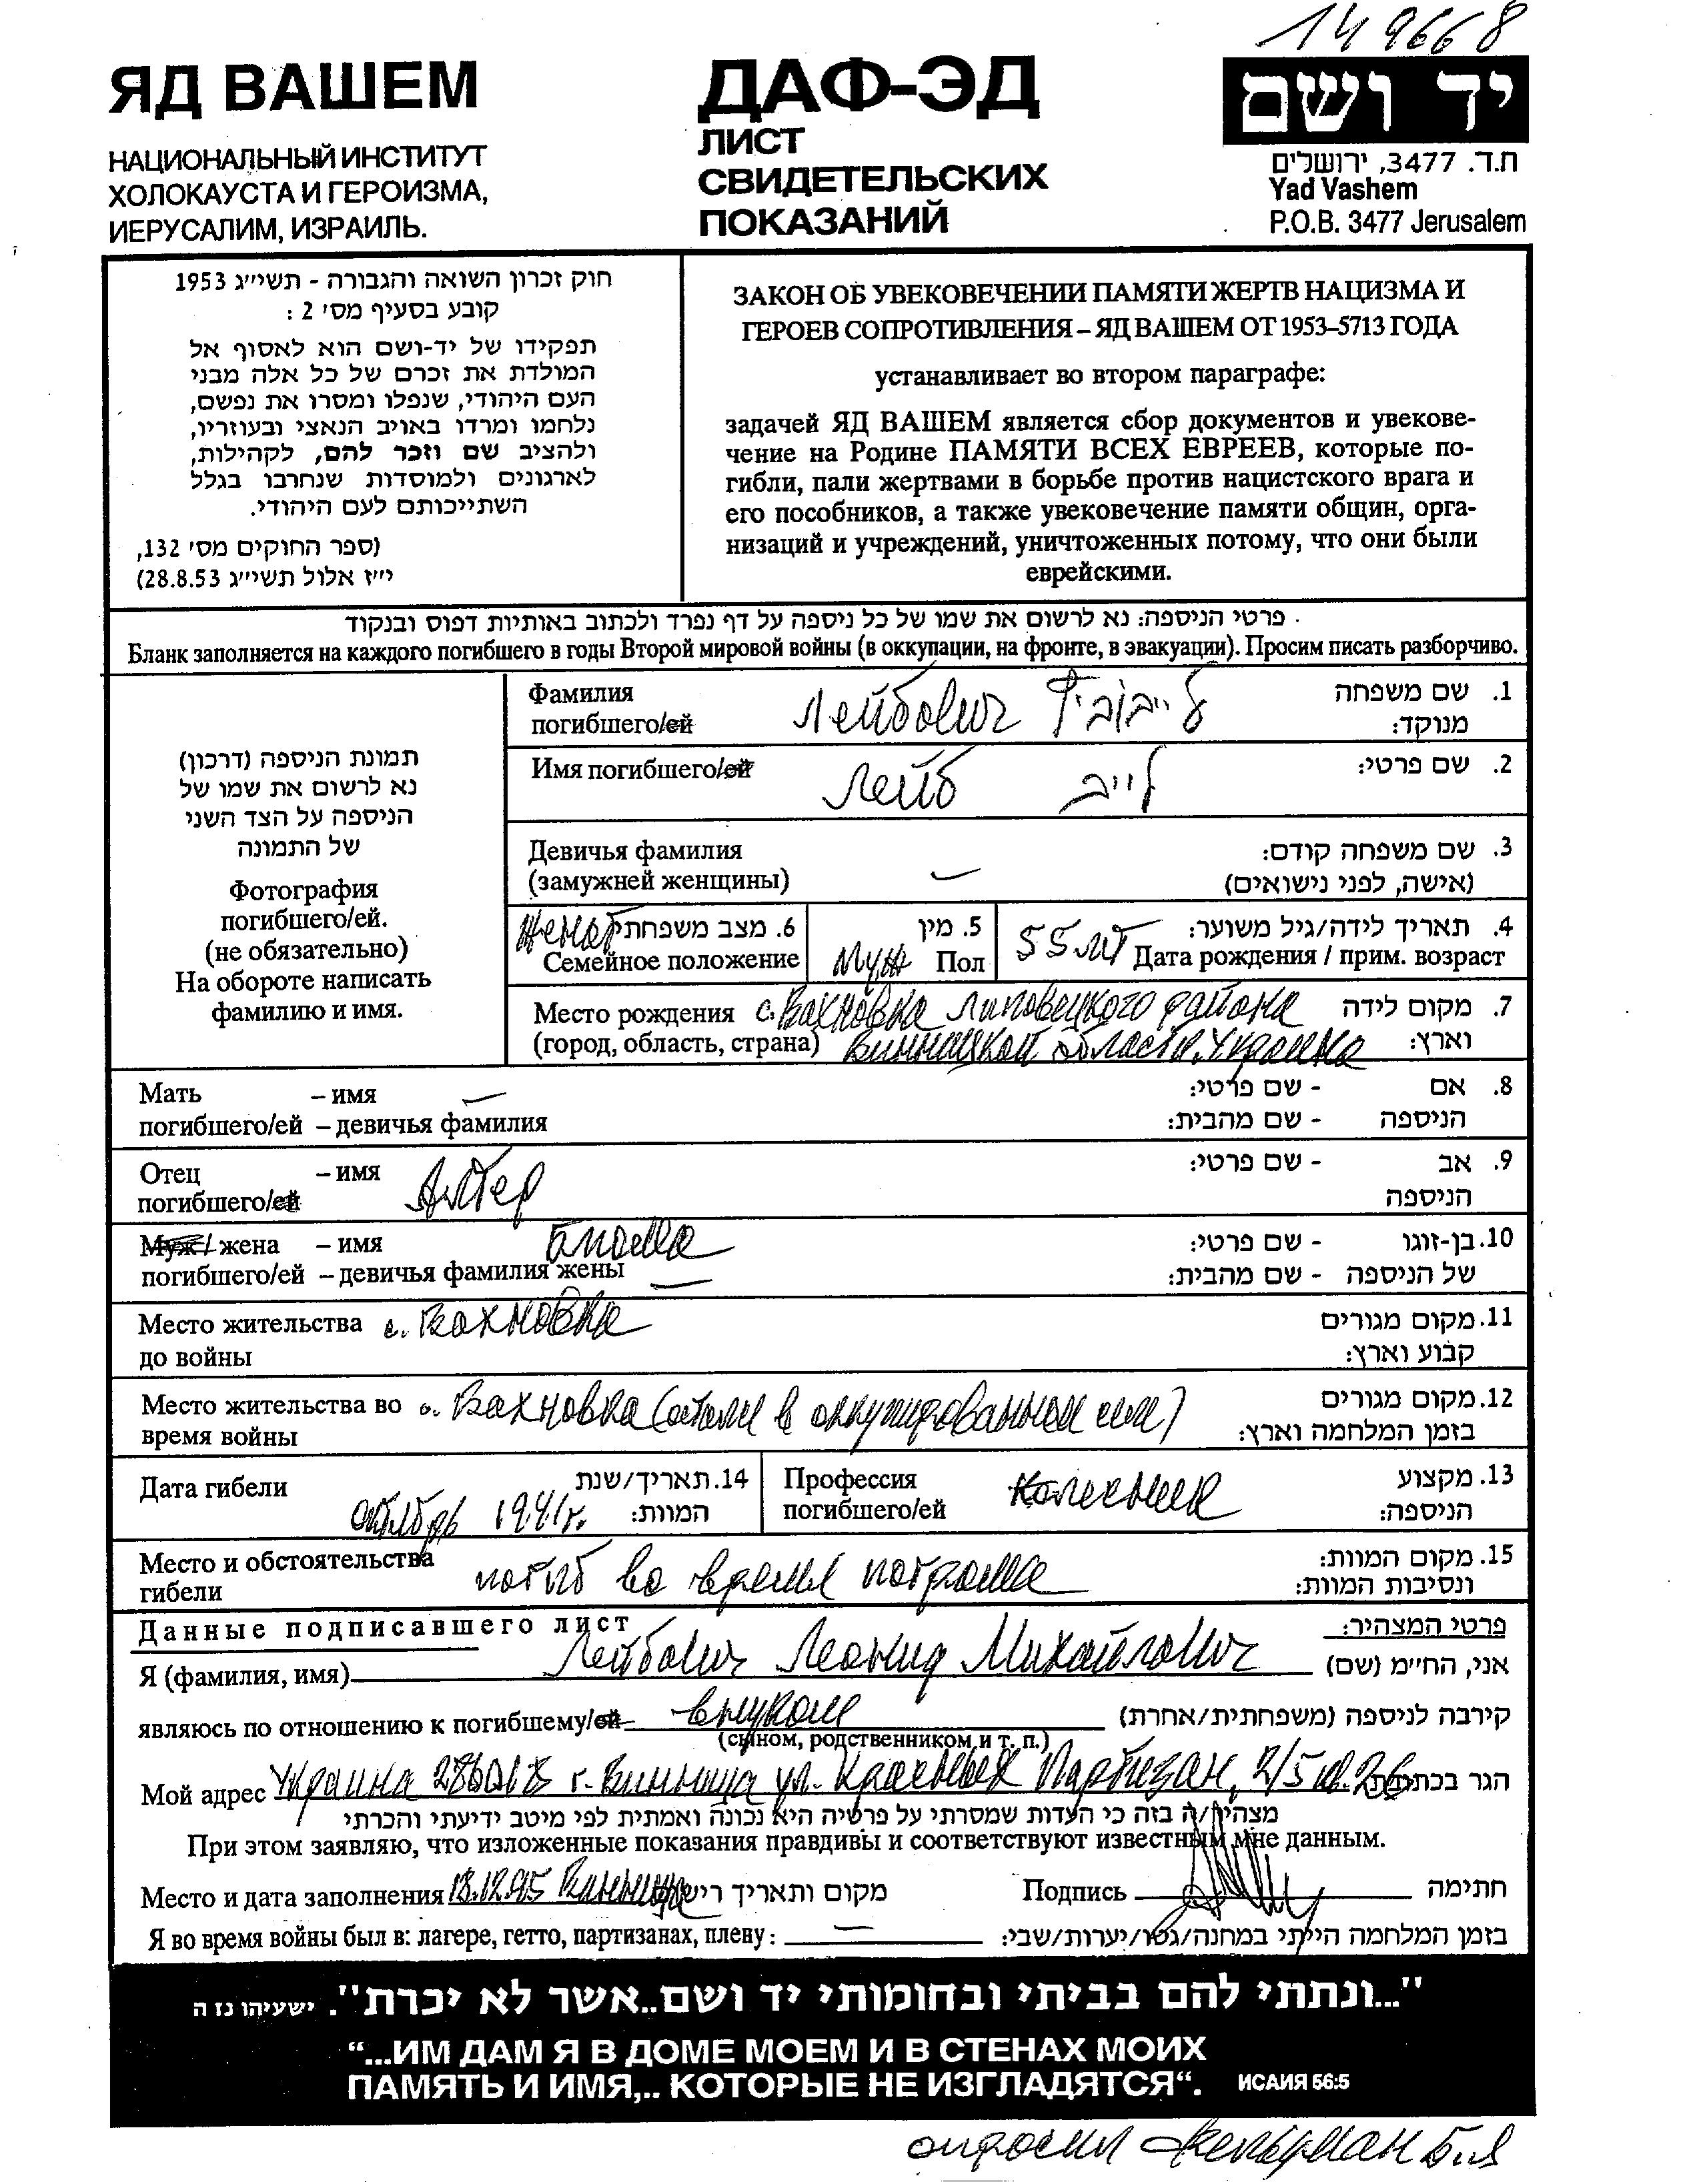 149668
ЯД ВАШЕМ
НАЦИОНАЛЬНЫЙ ИНСТИТУТ
ХОЛОКАУСТА И ГЕРОИЗМА,
ИЕРУСАЛИМ, ИЗРАИЛЬ.
ДАФ-ЭД
ЛИСТ
СВИДЕТЕЛЬСКИХ
ПОКАЗАНИЙ
יד ושם
ת.ד. 3477, ירושלים
Yad Vashem
P.O.B. 3477 Jerusalem
חוק זכרון השואה והגבורה - תשי״ג 1953
קובע בסעיף מס׳ 2 :
תפקידו של יד-ושם הוא לאסוף אל
המולדת את זכרם של כל אלה מבני
העם היהודי, שנפלו ומסרו את נפשם,
נלחמו ומרדו באויב הנאצי ובעוזריו,
ולהציב שם וזכר להם, לקהילות,
לארגונים ולמוסדות שנחרבו בגלל
השתייכותם לעם היהודי.
(ספר החוקים מס׳ 132,
י״ז אלול תשי״ג 28.8.53)
ЗАКОН ОБ УВЕКОВЕЧЕНИИ ПАМЯТИ ЖЕРТВ НАЦИЗМА И
ГЕРОЕВ СОПРОТИВЛЕНИЯ – ЯД ВАШЕМ ОТ 1953–5713 ГОДА
устанавливает во втором параграфе:
задачей ЯД ВАШЕМ является сбор документов и увекове-
чение на Родине ПАМЯТИ ВСЕХ ЕВРЕЕВ, которые по-
гибли, пали жертвами в борьбе против нацистского врага и
его пособников, а также увековечение памяти общин, орга-
низаций и учреждений, уничтоженных потому, что они были
еврейскими.
פרטי הניספה: נא לרשום את שמו של כל ניספה על דף נפרד ולכתוב באותיות דפוס ובנקוד
Бланк заполняется на каждого погибшего в годы Второй мировой войны (в оккупации, на фронте, в эвакуации). Просим писать разборчиво.
תמונת הניספה (דרכון)
נא לרשום את שמו של
הניספה על הצד השני
של התמונה
Фотография
погибшего/ей.
(не обязательно)
На обороте написать
фамилию и имя.
Фамилия
погибшего/ей Лейбович לייבוביץ
1. שם משפחה
מנוקד:
Имя погибшего/ей Лейб לייב 2. שם פרטי:
Девичья фамилия
(замужней женщины) —
3. שם משפחה קודם:
(אישה, לפני נישואים)
женат 6. מצב משפחתי
Семейное положение
5. מין
муж Пол
4. תאריך לידה/גיל משוער:
55 лет Дата рождения / прим. возраст
Место рождения с. Вахновка Липовецкого района 7. מקום לידה
(город, область, страна) Винницкой области, Украина וארץ:
Мать – имя — 8. אם - שם פרטי:
погибшего/ей – девичья фамилия הניספה - שם מהבית:
Отец – имя Алтер 9. אב - שם פרטי:
погибшего/ей הניספה
Муж / жена – имя Блюма 10. בן-זוגו - שם פרטי:
погибшего/ей – девичья фамилия жены — של הניספה - שם מהבית:
Место жительства с. Вахновка 11. מקום מגורים
до войны קבוע וארץ:
Место жительства во с. Вахновка (остали в оккупированном селе) 12. מקום מגורים
время войны בזמן המלחמה וארץ:
Дата гибели 14. תאריך/שנת
октябрь 1941г. המוות:
Профессия Колесник 13. מקצוע
погибшего/ей הניספה:
Место и обстоятельства 15. מקום המוות:
гибели погиб во время погрома ונסיבות המוות:
Данные подписавшего лист פרטי המצהיר:
Я (фамилия, имя) Лейбович Леонид Михайлович אני, החי״מ (שם)
являюсь по отношению к погибшему/ей внуком קירבה לניספה (משפחתית/אחרת)
(сыном, родственником и т. п.)
Мой адрес Украина г. Винница ул. Красных Партизан, 2/5 кв. 26 הגר בכתובת
מצהיר/ה בזה כי העדות שמסרתי על פרטיה היא נכונה ואמתית לפי מיטב ידיעתי והכרתי
При этом заявляю, что изложенные показания правдивы и соответствуют известным мне данным.
Место и дата заполнения 13.12.95 Винница מקום ותאריך רישום Подпись חתימה
Я во время войны был в: лагере, гетто, партизанах, плену: — בזמן המלחמה הייתי במחנה/גטו/יערות/שבי:
״...ונתתי להם בביתי ובחומותי יד ושם..אשר לא יכרת״. ישעיהו נז ה
“...ИМ ДАМ Я В ДОМЕ МОЕМ И В СТЕНАХ МОИХ
ПАМЯТЬ И ИМЯ,.. КОТОРЫЕ НЕ ИЗГЛАДЯТСЯ“. ИСАИЯ 56:5
опросил Фельдман Б.Я